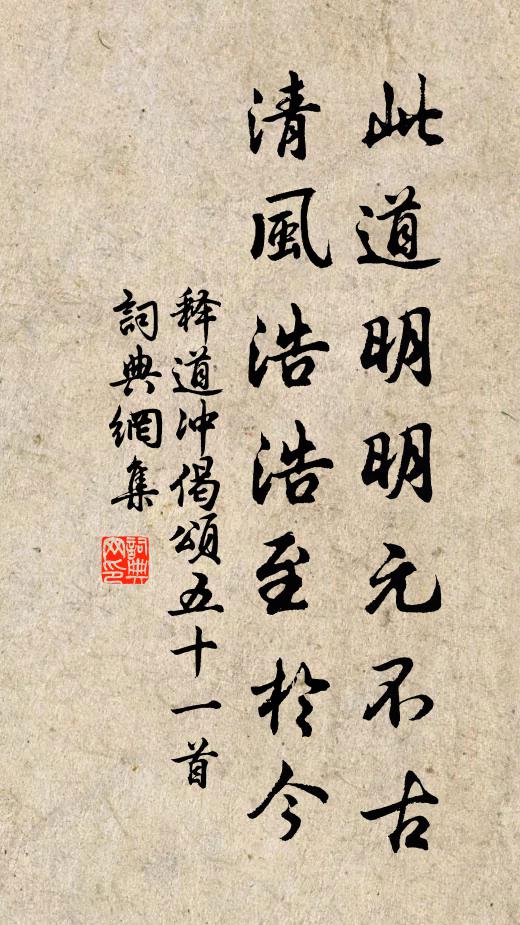 此道明明元不古
清風浩浩至於今
释道冲偈頌五十一首
詞典網集
詞典網印